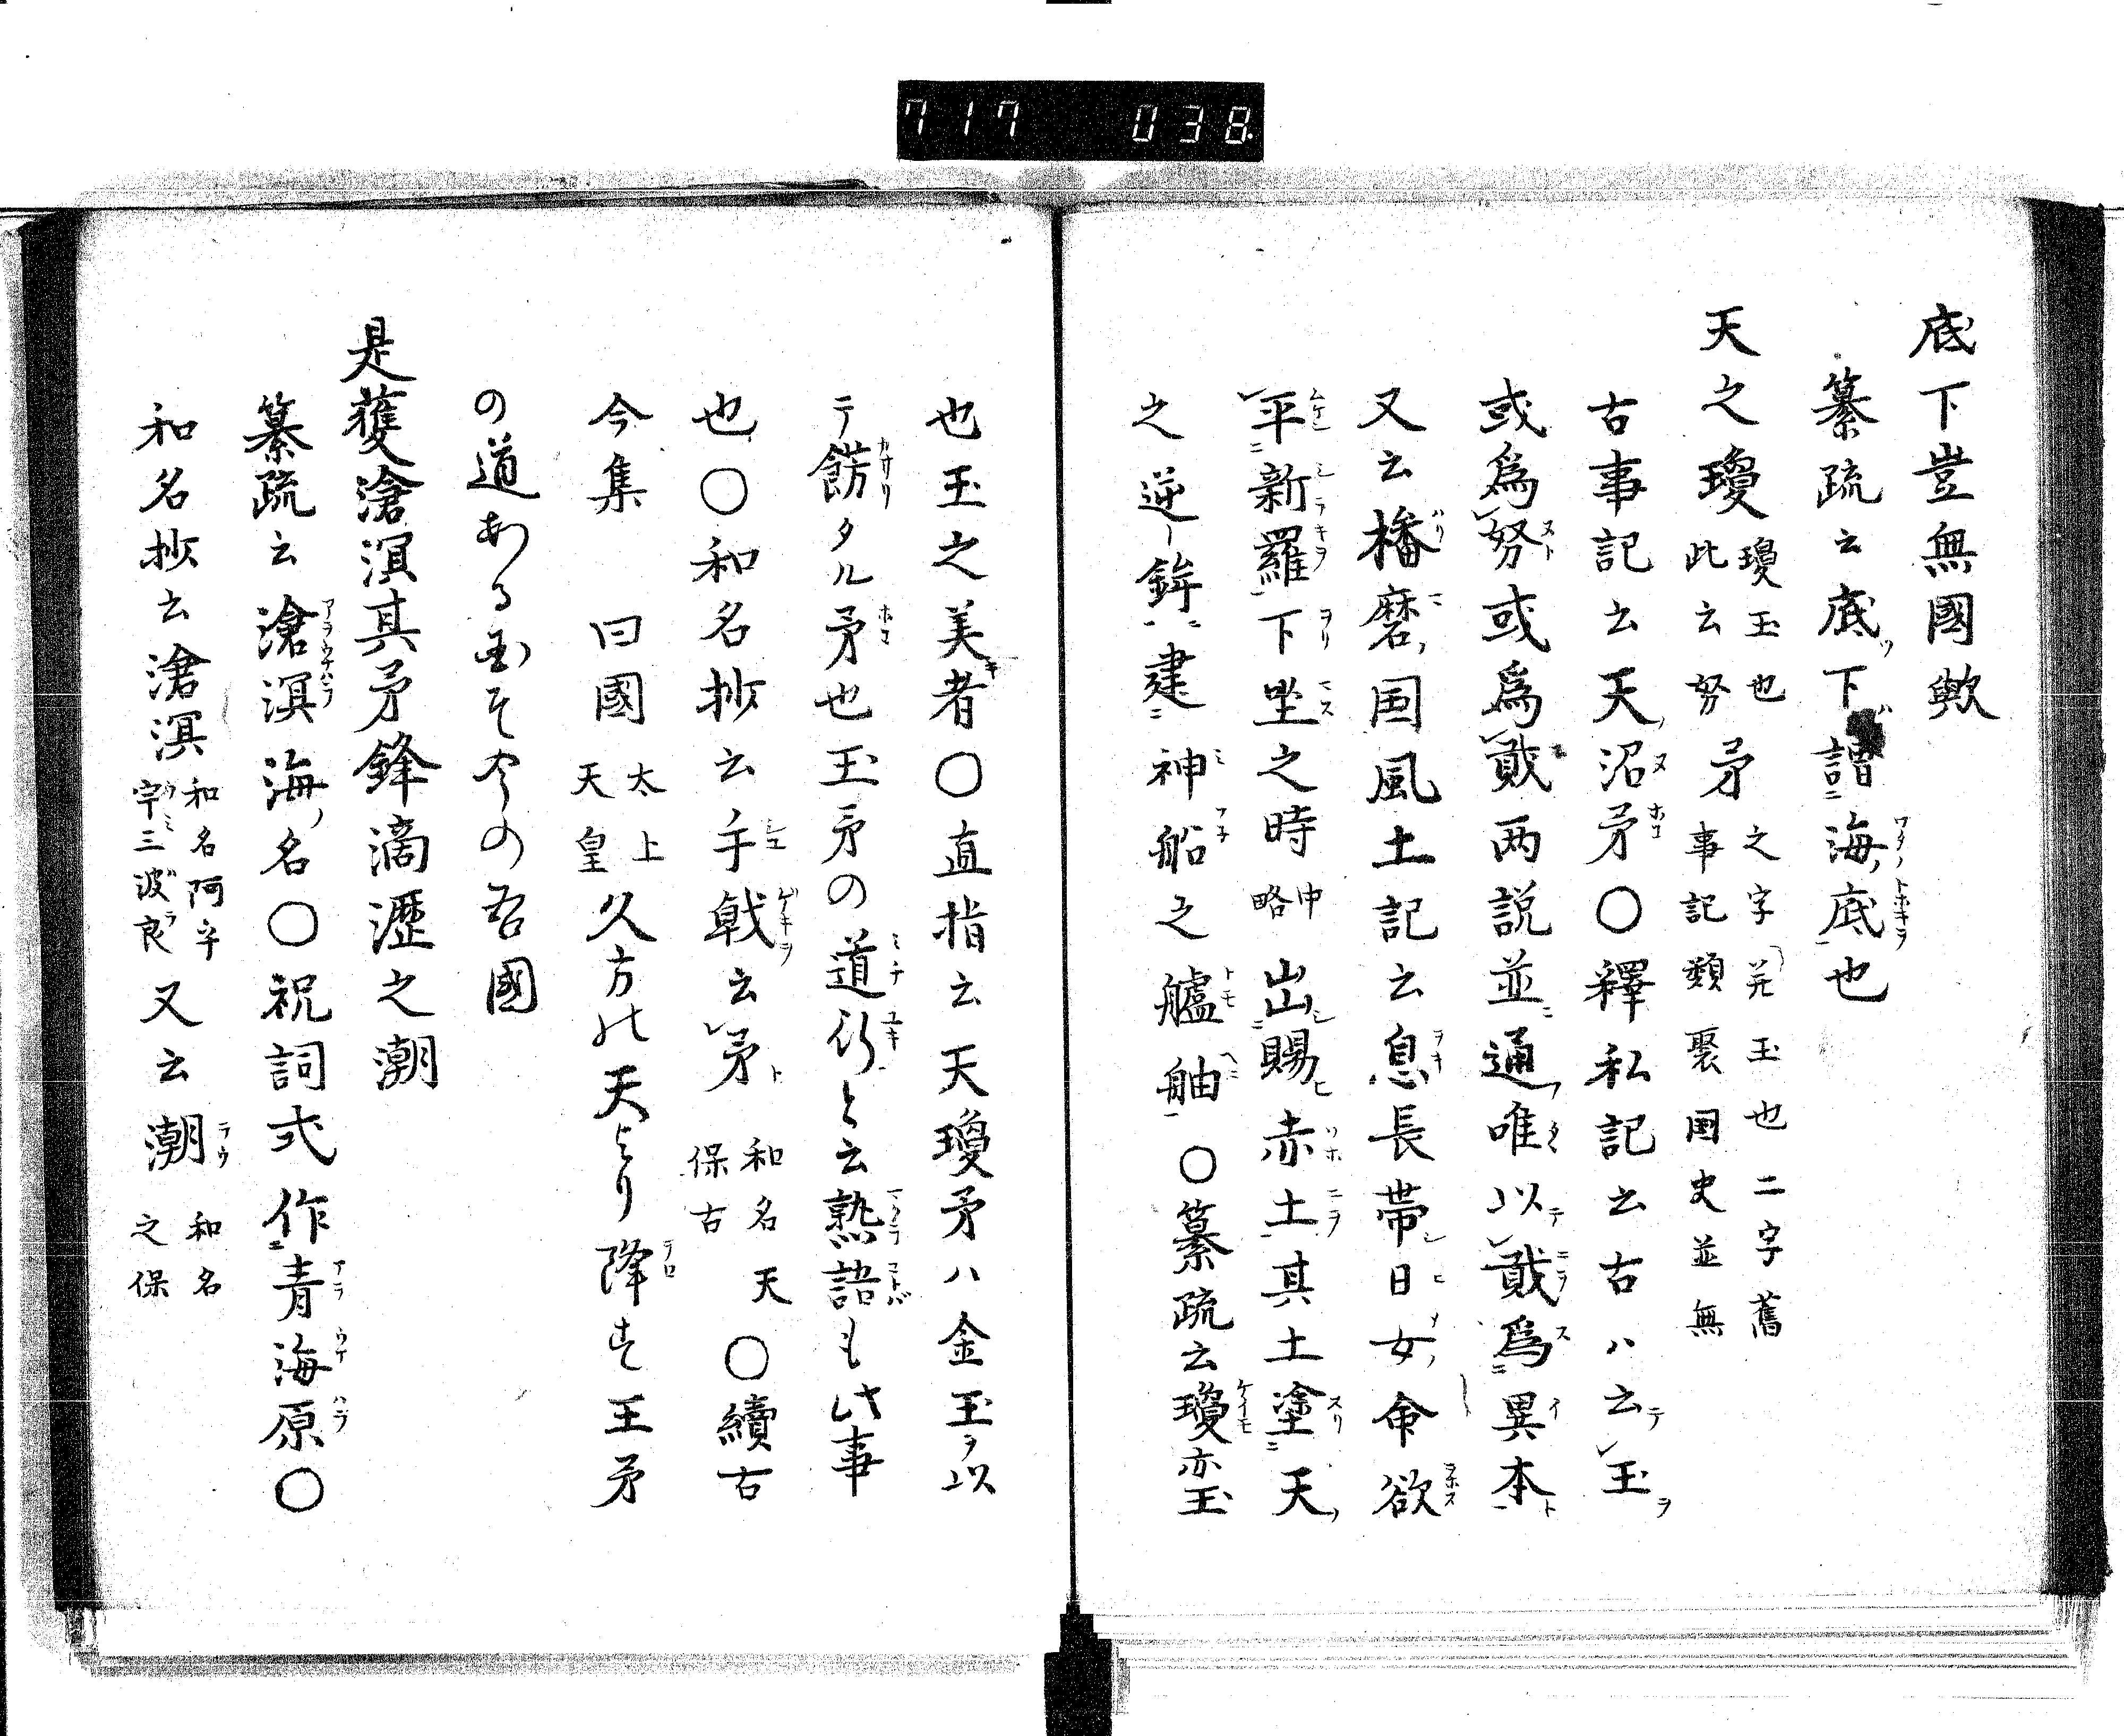 717 038
底下豈無國歟
纂疏云底下謂海底也
天之瓊瓊玉也此云努矛之字 玉也二字舊事記類聚国史並無
古事記云天沼矛〇釋私記云古ハ云玉
或爲努或爲戝两説並通唯以戝爲異本
又云播磨国風土記云息長帯日女命欲
平新羅下坐之時中略出賜赤土其土塗天
之逆鉾建神船之艫舳〇纂疏云瓊亦玉
也玉之美者〇直指云天瓊矛ハ金玉ヲ以
テ餝タル矛也玉矛の道行と云熟語も此事
也〇和名抄云手戟云矛和名天保古〇續古
今集 曰國太上天皇久方の天より降す玉矛
の道ある国そ今の吾國
是獲滄溟其矛鋒滴瀝之潮
纂疏云滄溟海名〇祝詞式作青海原〇
和名抄云滄溟和名阿乎宇三波良又云潮和名之保